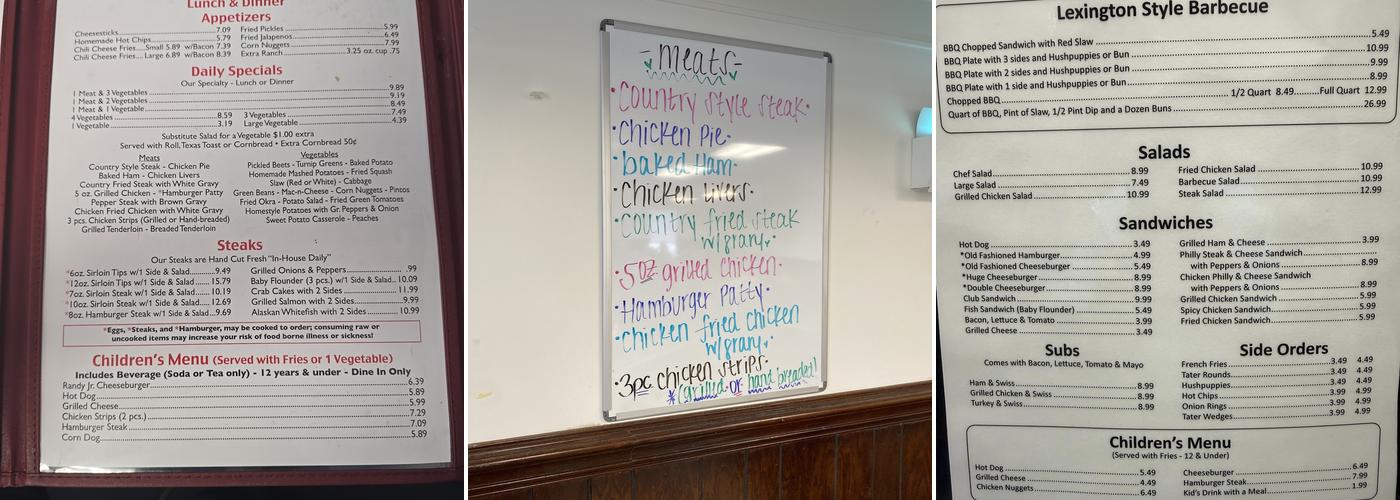 Lunch & Dinner
Appetizers
Cheesesticks 7.09
Homemade Hot Chips 5.79
Chili Cheese Fries....Small 5.89 w/Bacon 7.39
Chili Cheese Fries.... Large 6.89 w/Bacon 8.39
Fried Pickles 5.99
Fried Jalapenos 6.49
Corn Nuggets 7.99
Extra Ranch 3.25 oz. cup .75
Daily Specials
Our Specialty - Lunch or Dinner
1 Meat & 3 Vegetables 9.89
1 Meat & 2 Vegetables 9.19
1 Meat & 1 Vegetable 8.49
4 Vegetables 8.59 3 Vegetables 7.49
1 Vegetable 3.19 Large Vegetable 4.39
Substitute Salad for a Vegetable $1.00 extra
Served with Roll, Texas Toast or Cornbread • Extra Cornbread 50¢
Meats
Country Style Steak - Chicken Pie
Baked Ham - Chicken Livers
Country Fried Steak with White Gravy
5 oz. Grilled Chicken - *Hamburger Patty
Pepper Steak with Brown Gravy
Chicken Fried Chicken with White Gravy
3 pcs. Chicken Strips (Grilled or Hand-breaded)
Grilled Tenderloin - Breaded Tenderloin
Vegetables
Pickled Beets - Turnip Greens - Baked Potato
Homemade Mashed Potatoes - Fried Squash
Slaw (Red or White) - Cabbage
Green Beans - Mac-n-Cheese - Corn Nuggets - Pintos
Fried Okra - Potato Salad - Fried Green Tomatoes
Homestyle Potatoes with Gr. Peppers & Onion
Sweet Potato Casserole - Peaches
Steaks
Our Steaks are Hand Cut Fresh "In-House Daily"
*6oz. Sirloin Tips w/1 Side & Salad 9.49
*12oz. Sirloin Tips w/1 Side & Salad 15.79
*7oz. Sirloin Steak w/1 Side & Salad 10.19
*10oz. Sirloin Steak w/1 Side & Salad 12.69
*8oz. Hamburger Steak w/1 Side & Salad 9.69
Grilled Onions & Peppers .99
Baby Flounder (3 pcs.) w/1 Side & Salad 10.09
Crab Cakes with 2 Sides 11.99
Grilled Salmon with 2 Sides 9.99
Alaskan Whitefish with 2 Sides 10.99
*Eggs, *Steaks, and *Hamburger, may be cooked to order; consuming raw or
uncooked items may increase your risk of food borne illness or sickness!
Children's Menu (Served with Fries or 1 Vegetable)
Includes Beverage (Soda or Tea only) - 12 years & under - Dine In Only
Randy Jr. Cheeseburger 6.39
Hot Dog 5.89
Grilled Cheese 5.99
Chicken Strips (2 pcs.) 7.29
Hamburger Steak 7.09
Corn Dog 5.89
-Meats-
•Country Style Steak•
•Chicken Pie•
•baked Ham•
•Chicken livers•
•Country fried steak
w/gravy•
•5oz grilled chicken•
•Hamburger Patty•
•chicken fried chicken
w/gravy•
•3pc chicken strips•
*(grilled or hand breaded!
Lexington Style Barbecue
BBQ Chopped Sandwich with Red Slaw 5.49
BBQ Plate with 3 sides and Hushpuppies or Bun 10.99
BBQ Plate with 2 sides and Hushpuppies or Bun 9.99
BBQ Plate with 1 side and Hushpuppies or Bun 8.99
Chopped BBQ 1/2 Quart 8.49 Full Quart 12.99
Quart of BBQ, Pint of Slaw, 1/2 Pint Dip and a Dozen Buns 26.99
Salads
Chef Salad 8.99
Large Salad 7.49
Grilled Chicken Salad 10.99
Fried Chicken Salad 10.99
Barbecue Salad 10.99
Steak Salad 12.99
Sandwiches
Hot Dog 3.49
*Old Fashioned Hamburger 4.99
*Old Fashioned Cheeseburger 5.49
*Huge Cheeseburger 8.99
*Double Cheeseburger 8.99
Club Sandwich 9.99
Fish Sandwich (Baby Flounder) 5.49
Bacon, Lettuce & Tomato 3.99
Grilled Cheese 3.49
Grilled Ham & Cheese 3.99
Philly Steak & Cheese Sandwich
with Peppers & Onions 8.99
Chicken Philly & Cheese Sandwich
with Peppers & Onions 8.99
Grilled Chicken Sandwich 5.99
Spicy Chicken Sandwich 5.99
Fried Chicken Sandwich 5.99
Subs
Comes with Bacon, Lettuce, Tomato & Mayo
Ham & Swiss 8.99
Grilled Chicken & Swiss 8.99
Turkey & Swiss 8.99
Side Orders
French Fries 3.49 4.49
Tater Rounds 3.49 4.49
Hushpuppies 3.49 4.49
Hot Chips 3.99 4.99
Onion Rings 3.99 4.99
Tater Wedges 3.99 4.99
Children's Menu
(Served with Fries - 12 & Under)
Hot Dog 5.49
Grilled Cheese 4.49
Chicken Nuggets 6.49
Cheeseburger 6.49
Hamburger Steak 7.99
Kid's Drink with a Meal 1.99